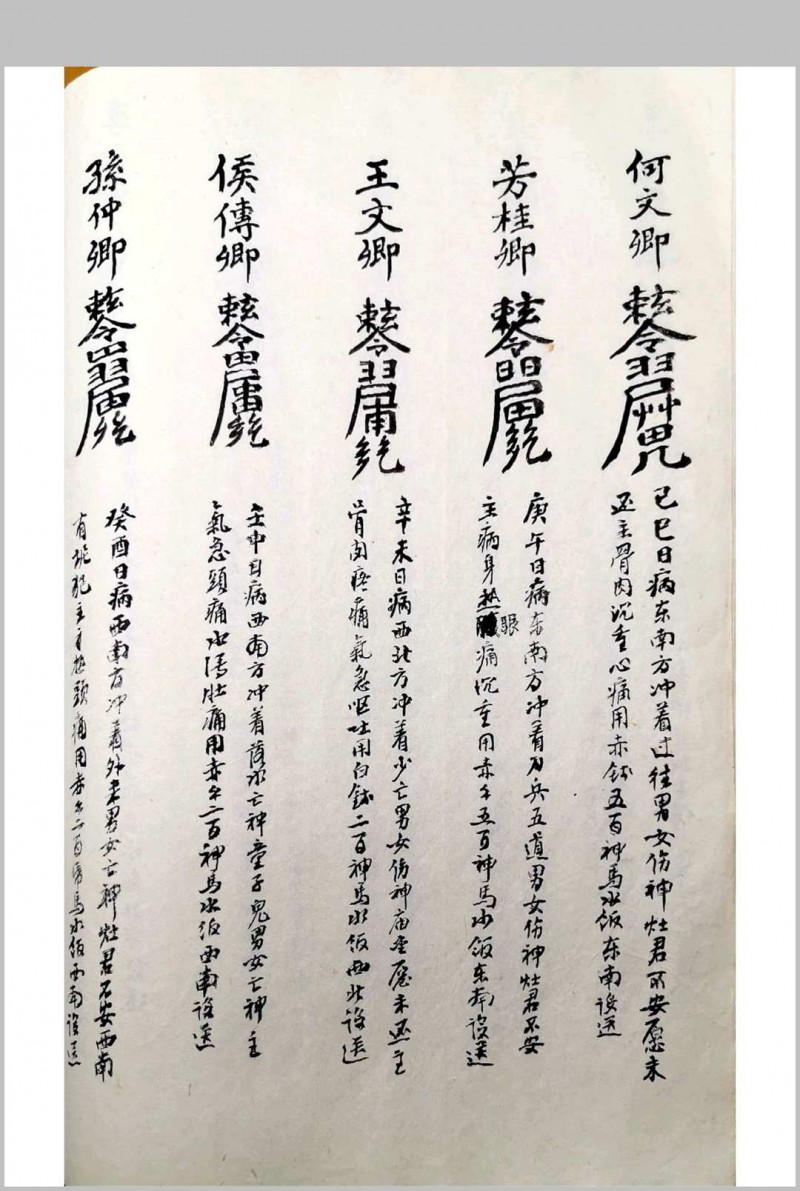 何文卿
己巳日病东南方冲着过往男女伤神灶君不安愿未
还主骨肉沉重心痛用赤钱五百神马水饭东南设送
芳桂卿
庚午日病东南方冲着刀兵五道男女伤神灶君不安
主病身热眼痛沉重用赤钱五百神马水饭东南设送
王文卿
辛未日病西北方冲着少亡男女伤神庙愿未还主
疼痛氣急呕吐用白钱二百神馬水饭西北设送
侯傳卿
壬申日病西南方冲着落水亡神童子兒男女亡神主
氣急頭痛水瀉肚痛用赤钱二百神馬水饭西南设送
孫仲卿
癸酉日病西南方冲着外来男女亡神灶君不安西南
有犯主身热頭痛用赤钱二百馬水饭西南设送